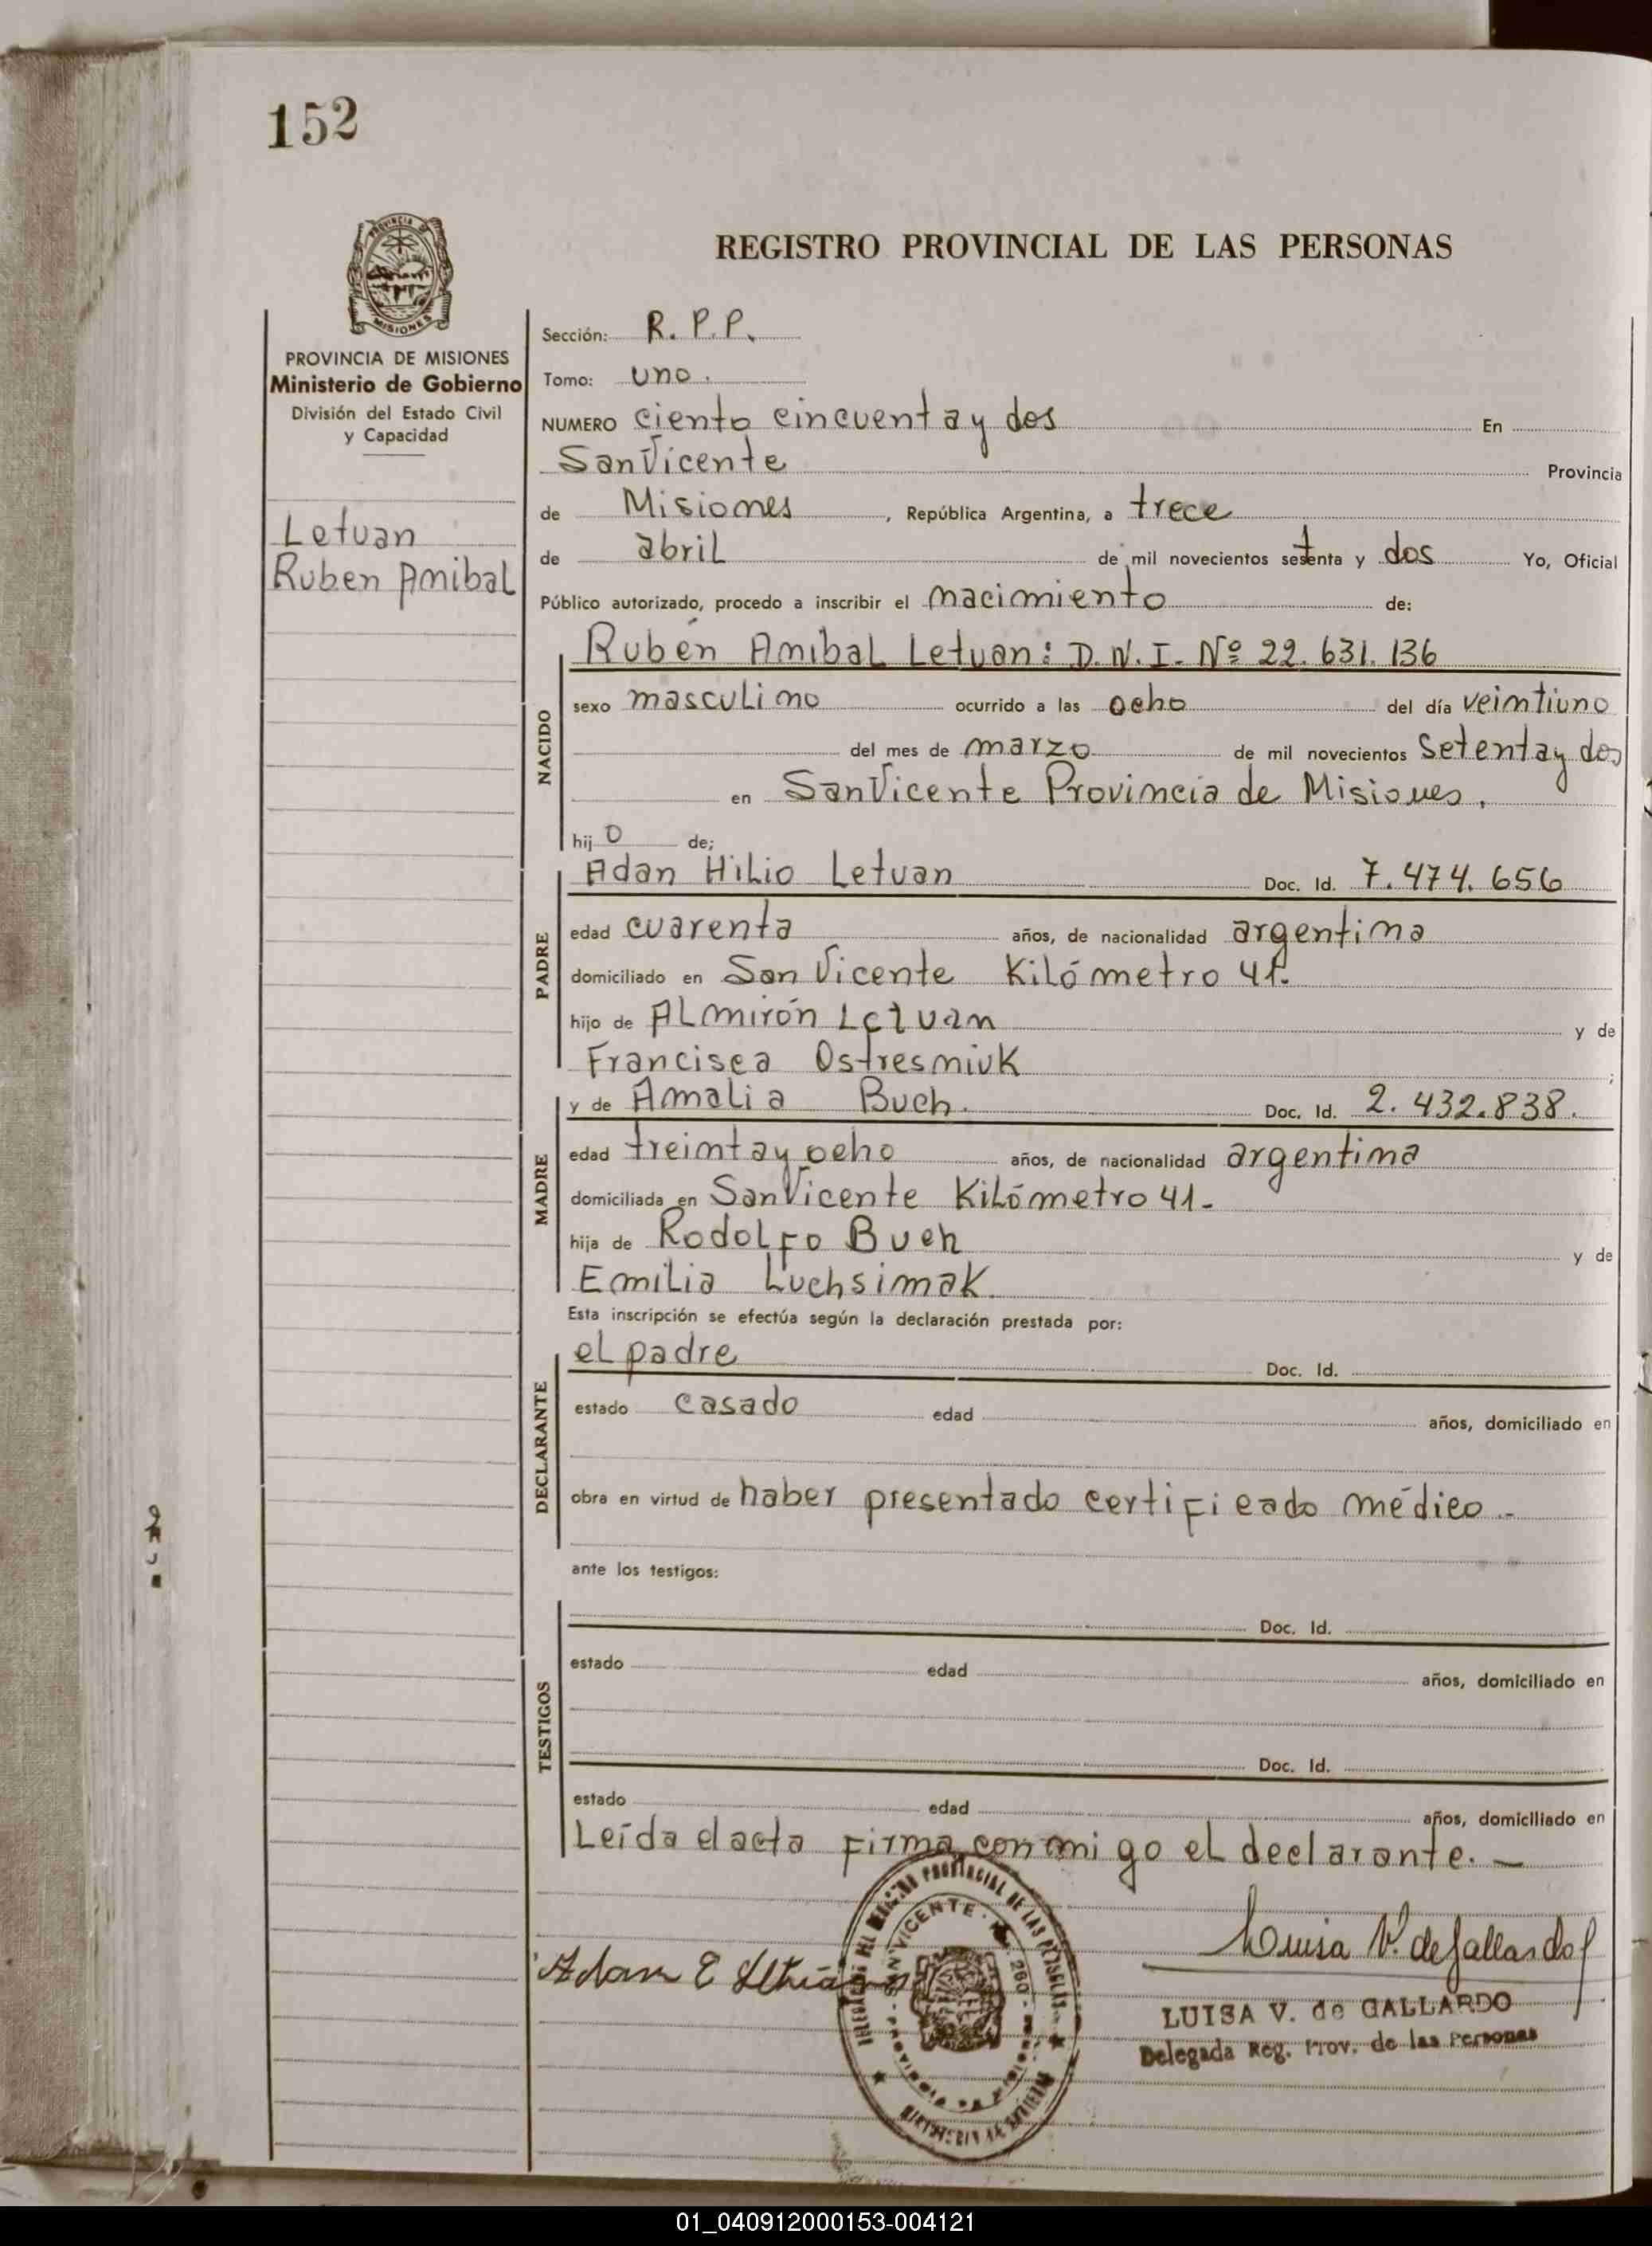 152
PROVINCIA DE
MISIONES
REGISTRO PROVINCIAL DE LAS PERSONAS
PROVINCIA DE MISIONES
Ministerio de Gobierno
División del Estado Civil
y Capacidad
Letuan
Ruben Anibal
Sección: R. P. P.
Tomo: uno.
NUMERO ciento cincuenta y dos En
San Vicente Provincia
de Misiones, República Argentina, a trece
de abril de mil novecientos setenta y dos Yo, Oficial
Público autorizado, procedo a inscribir el nacimiento de:
NACIDO
Rubén Anibal Letuan: D.N.I. Nº 22.631.136
sexo masculino ocurrido a las ocho del día veintiuno
del mes de marzo de mil novecientos setenta y dos
en San Vicente Provincia de Misiones.
hijo de;
PADRE
Adan Hilio Letuan Doc. Id. 7.474.656
edad cuarenta años, de nacionalidad argentina
domiciliado en San Vicente Kilómetro 41.
hijo de Almirón Letuan y de
Francisca Ostresniuk ;
MADRE
y de Amalia Buch. Doc. Id. 2.432.838.
edad treinta y ocho años, de nacionalidad argentina
domiciliada en San Vicente Kilómetro 41-
hija de Rodolfo Buch y de
Emilia Luchsinak.
Esta inscripción se efectúa según la declaración prestada por:
DECLARANTE
el padre Doc. Id.
estado casado edad años, domiciliado en
obra en virtud de haber presentado certificado médico.-
ante los testigos:
TESTIGOS
Doc. Id.
estado edad años, domiciliado en
Doc. Id.
estado edad años, domiciliado en
Leída el acta firma conmigo el declarante.-
Adan E
Luisa V. de Gallardo
PROVINCIAL DE LAS
SAN VICENTE
260
LUISA V. de GALLARDO
Delegada Reg. Prov. de las Personas
01_040912000153-004121